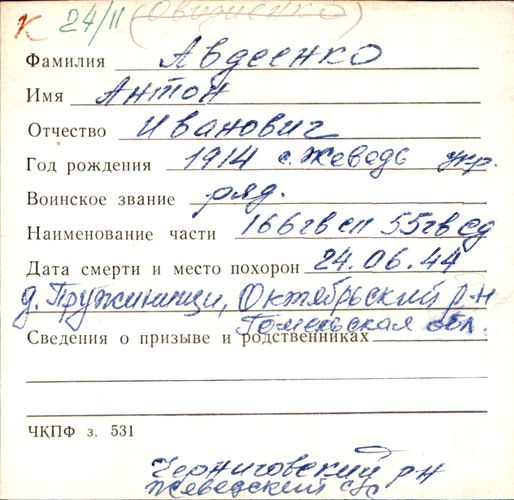 К 24/II (Овдиенко)
Фамилия Авдеенко
Имя Антон
Отчество Иванович
Год рождения 1914 с. Жеведь укр.
Воинское звание ряд.
Наименование части 166гв сп 55гв сд
Дата смерти и место похорон 24.06.44
д. Пружинищи, Октябрьский р-н
Гомельская обл.
Сведения о призыве и родственниках
ЧКПФ з. 531
Черниговский р-н
Жеведский с/с